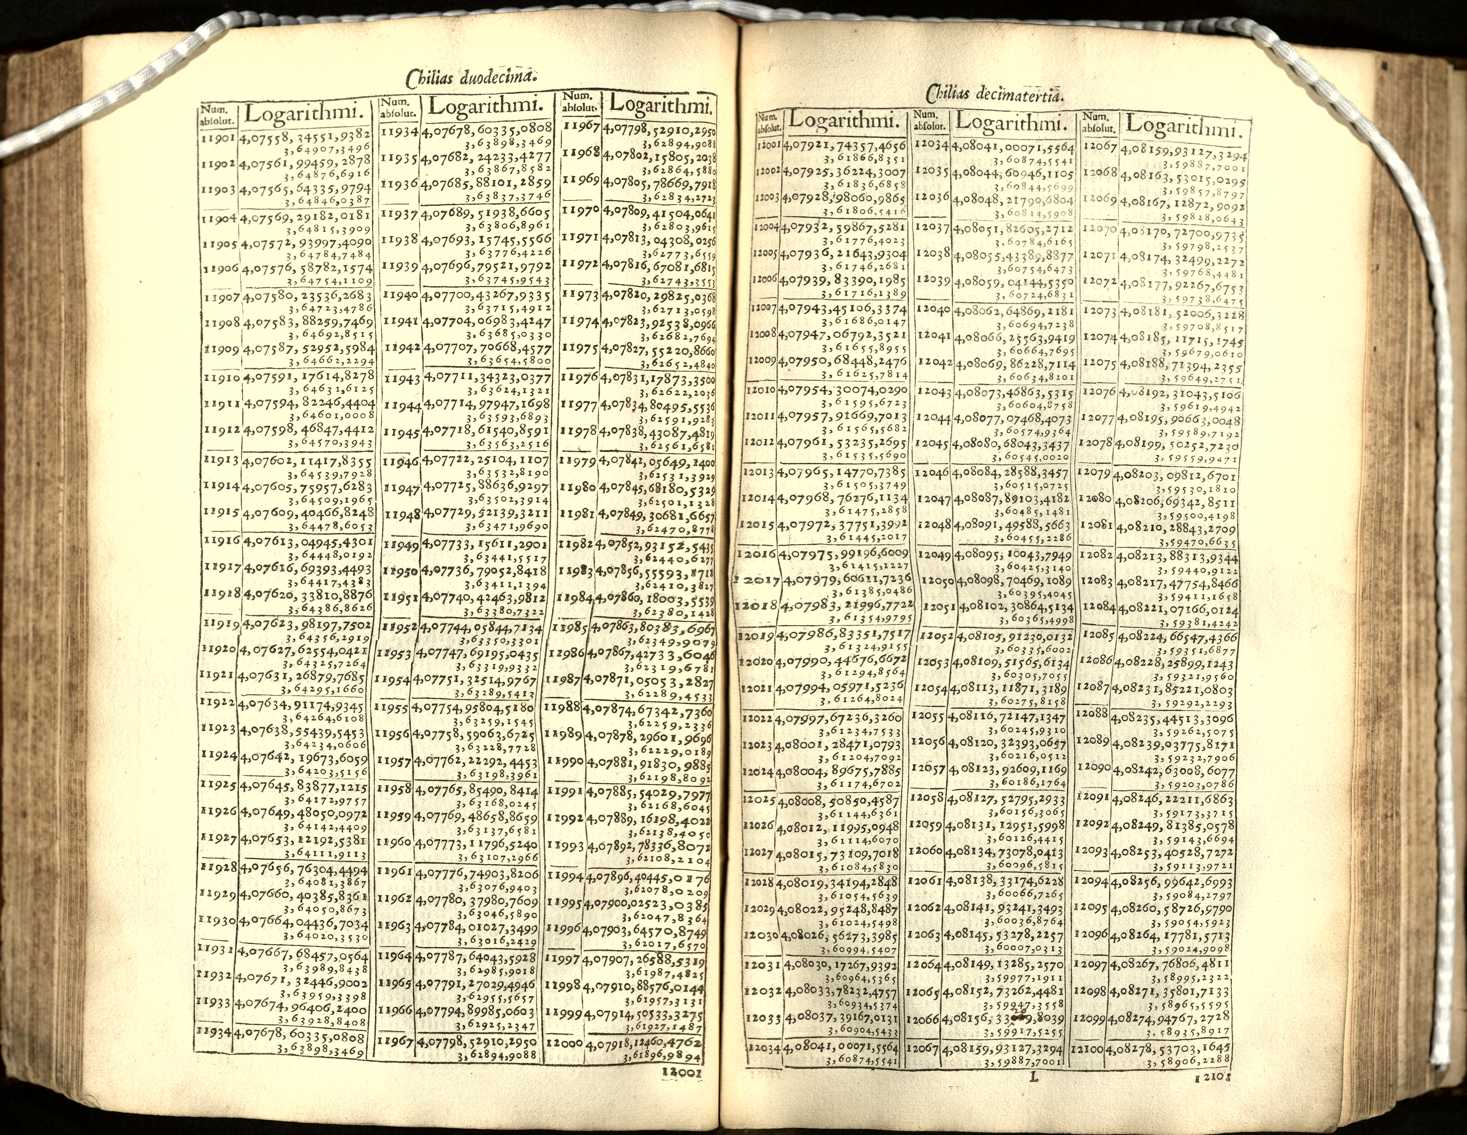 Chilias duodecima.
Num. absolut. Logarithmi.
11901 4,07558,34551,9382
3,64907,3496
11902 4,07561,99459,2878
3,64876,6916
11903 4,07565,64335,9794
3,64846,0387
11904 4,07569,29182,0181
3,64815,3909
11905 4,07572,93997,4090
3,64784,7484
11906 4,07576,58782,1574
3,64754,1109
11907 4,07580,23536,2683
3,64723,4786
11908 4,07583,88259,7469
3,64692,8515
11909 4,07587,52952,5984
3,64662,2294
11910 4,07591,17614,8278
3,64631,6125
11911 4,07594,82246,4404
3,64601,0008
11912 4,07598,46847,4412
3,64570,3943
11913 4,07602,11417,8355
3,64539,7928
11914 4,07605,75957,6283
3,64509,1965
11915 4,07609,40466,8248
3,64478,6053
11916 4,07613,04945,4301
3,64448,0192
11917 4,07616,69393,4493
3,64417,4383
11918 4,07620,33810,8876
3,64386,8626
11919 4,07623,98197,7502
3,64356,2919
11920 4,07627,62554,0421
3,64325,7264
11921 4,07631,26879,7685
3,64295,1660
11922 4,07634,91174,9345
3,64264,6108
11923 4,07638,55439,5453
3,64234,0606
11924 4,07642,19673,6059
3,64203,5156
11925 4,07645,83877,1215
3,64172,9757
11926 4,07649,48050,0972
3,64142,4409
11927 4,07653,12192,5381
3,64111,9113
11928 4,07656,76304,4494
3,64081,3867
11929 4,07660,40385,8361
3,64050,8673
11930 4,07664,04436,7034
3,64020,3530
11931 4,07667,68457,0564
3,63989,8438
11932 4,07671,32446,9002
3,63959,3398
11933 4,07674,96406,2400
3,63928,8408
11934 4,07678,60335,0808
3,63898,3469
Num. absolut. Logarithmi.
11934 4,07678,60335,0808
3,63898,3469
11935 4,07682,24233,4277
3,63867,8582
11936 4,07685,88101,2859
3,63837,3746
11937 4,07689,51938,6605
3,63806,8961
11938 4,07693,15745,5566
3,63776,4226
11939 4,07696,79521,9792
3,63745,9543
11940 4,07700,43267,9335
3,63715,4912
11941 4,07704,06983,4247
3,63685,0330
11942 4,07707,70668,4577
3,63654,5800
11943 4,07711,34323,0377
3,63624,1321
11944 4,07714,97947,1698
3,63593,6893
11945 4,07718,61540,8591
3,63563,2516
11946 4,07722,25104,1107
3,63532,8190
11947 4,07725,88636,9297
3,63502,3914
11948 4,07729,52139,3211
3,63471,9690
11949 4,07733,15611,2901
3,63441,5517
11950 4,07736,79052,8418
3,63411,1394
11951 4,07740,42463,9812
3,63380,7322
11952 4,07744,05844,7134
3,63350,3301
11953 4,07747,69195,0435
3,63319,9332
11954 4,07751,32514,9767
3,63289,5413
11955 4,07754,95804,5180
3,63259,1545
11956 4,07758,59063,6725
3,63228,7728
11957 4,07762,22292,4453
3,63198,3961
11958 4,07765,85490,8414
3,63168,0245
11959 4,07769,48658,8659
3,63137,6581
11960 4,07773,11796,5240
3,63107,2966
11961 4,07776,74903,8206
3,63076,9403
11962 4,07780,37980,7609
3,63046,5890
11963 4,07784,01027,3499
3,63016,2429
11964 4,07787,64043,5928
3,62985,9018
11965 4,07791,27029,4946
3,62955,5657
11966 4,07794,89985,0603
3,62925,2347
11967 4,07798,52910,2950
3,62894,9088
Num. absolut. Logarithmi.
11967 4,07798,52910,2950
3,62894,9081
11968 4,07802,15805,2038
3,62864,5880
11969 4,07805,78669,7918
3,62834,2723
11970 4,07809,41504,0641
3,62803,9615
11971 4,07813,04308,0256
3,62773,6559
11972 4,07816,67081,6815
3,62743,3553
11973 4,07820,29825,0368
3,62713,0598
11974 4,07823,92538,0966
3,62682,7694
11975 4,07827,55220,8660
3,62652,4840
11976 4,07831,17873,3500
3,62622,2036
11977 4,07834,80495,5536
3,62591,9283
11978 4,07838,43087,4819
3,62561,6581
11979 4,07842,05649,1400
3,62531,3929
11980 4,07845,68180,5329
3,62501,1328
11981 4,07849,30681,6657
3,62470,8778
11982 4,07852,93152,5435
3,62440,6277
11983 4,07856,55593,1711
3,62410,3827
11984 4,07860,18003,5539
3,62380,1428
11985 4,07863,80383,6967
3,62349,9079
11986 4,07867,42733,6046
3,62319,6781
11987 4,07871,05053,2827
3,62289,4533
11988 4,07874,67342,7360
3,62259,2336
11989 4,07878,29601,9696
3,62229,0189
11990 4,07881,91830,9885
3,62198,8092
11991 4,07885,54029,7977
3,62168,6045
11992 4,07889,16198,4022
3,62138,4050
11993 4,07892,78336,8072
3,62108,2104
11994 4,07896,40445,0176
3,62078,0209
11995 4,07900,02523,0385
3,62047,8364
11996 4,07903,64570,8749
3,62017,6570
11997 4,07907,26588,5319
3,61987,4825
11998 4,07910,88576,0144
3,61957,3131
11999 4,07914,50533,3275
3,61927,1487
12000 4,07918,12460,4762
3,61896,9894
12001
Chilias decimatertia.
Num. absolut. Logarithmi.
12001 4,07921,74357,4656
3,61866,8351
12002 4,07925,36224,3007
3,61836,6858
12003 4,07928,98060,9865
3,61806,5416
12004 4,07932,59867,5281
3,61776,4023
12005 4,07936,21643,9304
3,61746,2681
12006 4,07939,83390,1985
3,61716,1389
12007 4,07943,45106,3374
3,61686,0147
12008 4,07947,06792,3521
3,61655,8955
12009 4,07950,68448,2476
3,61625,7814
12010 4,07954,30074,0290
3,61595,6723
12011 4,07957,91669,7013
3,61565,5682
12012 4,07961,53235,2695
3,61535,5690
12013 4,07965,14770,7385
3,61505,3749
12014 4,07968,76276,1134
3,61475,2858
12015 4,07972,37751,3992
3,61445,2017
12016 4,07975,99196,6009
3,61415,1227
12017 4,07979,60611,7236
3,61385,0486
12018 4,07983,21996,7722
3,61354,9795
12019 4,07986,83351,7517
3,61324,9155
12020 4,07990,44676,6672
3,61294,8564
12021 4,07994,05971,5236
3,61264,8024
12022 4,07997,67236,3260
3,61234,7533
12023 4,08001,28471,0793
3,61204,7092
12024 4,08004,89675,7885
3,61174,6702
12025 4,08008,50850,4587
3,61144,6361
12026 4,08012,11995,0948
3,61114,6070
12027 4,08015,73109,7018
3,61084,5830
12028 4,08019,34194,2848
3,61054,5639
12029 4,08022,95248,8487
3,61024,5498
12030 4,08026,56273,3985
3,60994,5407
12031 4,08030,17267,9392
3,60964,5365
12032 4,08033,78232,4757
3,60934,5374
12033 4,08037,39167,0131
3,60904,5433
12034 4,08041,00071,5564
3,60874,5541
Num. absolut. Logarithmi.
12034 4,08041,00071,5564
3,60874,5541
12035 4,08044,60946,1105
3,60844,5699
12036 4,08048,21790,6804
3,60814,5908
12037 4,08051,82605,2712
3,60784,6165
12038 4,08055,43389,8877
3,60754,6473
12039 4,08059,04144,5350
3,60724,6831
12040 4,08062,64869,2181
3,60694,7238
12041 4,08066,25563,9419
3,60664,7695
12042 4,08069,86228,7114
3,60634,8201
12043 4,08073,46863,5315
3,60604,8758
12044 4,08077,07468,4073
3,60574,9364
12045 4,08080,68043,3437
3,60545,0020
12046 4,08084,28588,3457
3,60515,0725
12047 4,08087,89103,4182
3,60485,1481
12048 4,08091,49588,5663
3,60455,2286
12049 4,08095,10043,7949
3,60425,3140
12050 4,08098,70469,1089
3,60395,4045
12051 4,08102,30864,5134
3,60365,4998
12052 4,08105,91230,0132
3,60335,6002
12053 4,08109,51565,6134
3,60305,7055
12054 4,08113,11871,3189
3,60275,8158
12055 4,08116,72147,1347
3,60245,9310
12056 4,08120,32393,0657
3,60216,0512
12057 4,08123,92609,1169
3,60186,1764
12058 4,08127,52795,2933
3,60156,3065
12059 4,08131,12951,5998
3,60126,4415
12060 4,08134,73078,0413
3,60096,5815
12061 4,08138,33174,6228
3,60066,7265
12062 4,08141,93241,3493
3,60036,8764
12063 4,08145,53278,2257
3,60007,0313
12064 4,08149,13285,2570
3,59977,1911
12065 4,08152,73262,4481
3,59947,3558
12066
3,59917,5255
12067 4,08159,93127,3294
3,59887,7001
Num. absolut. Logarithmi.
12067 4,08159,93127,3294
3,59887,7001
12068 4,08163,53015,0295
3,59857,8797
12069 4,08167,12872,9092
3,59828,0643
12070 4,08170,72700,9735
3,59798,2537
12071 4,08174,32499,2272
3,59768,4481
12072 4,08177,92267,6753
3,59738,6475
12073 4,08181,52006,3228
3,59708,8517
12074 4,08185,11715,1745
3,59679,0610
12075 4,08188,71394,2355
3,59649,2751
12076 4,08192,31043,5106
3,59619,4942
12077 4,08195,90663,0048
3,59589,7192
12078 4,08199,50252,7230
3,59559,9471
12079 4,08203,09812,6701
3,59530,1810
12080 4,08206,69342,8511
3,59500,4198
12081 4,08210,28843,2709
3,59470,6635
12082 4,08213,88313,9344
3,59440,9122
12083 4,08217,47754,8466
3,59411,1658
12084 4,08221,07166,0124
3,59381,4242
12085 4,08224,66547,4366
3,59351,6877
12086 4,08228,25899,1243
3,59321,9560
12087 4,08231,85221,0803
3,59292,2293
12088 4,08235,44513,3096
3,59262,5075
12089 4,08239,03775,8171
3,59232,7906
12090 4,08242,63008,6077
3,59203,0786
12091 4,08246,22211,6863
3,59173,3715
12092 4,08249,81385,0578
3,59143,6694
12093 4,08253,40528,7272
3,59113,9721
12094 4,08256,99642,6993
3,59084,2797
12095 4,08260,58726,9790
3,59054,5923
12096 4,08264,17781,5713
3,59024,9098
12097 4,08267,76806,4811
3,58995,2322
12098 4,08271,35801,7133
3,58965,5595
12099 4,08274,94767,2728
3,58935,8917
12100 4,08278,53703,1645
3,58906,2288
L
12101